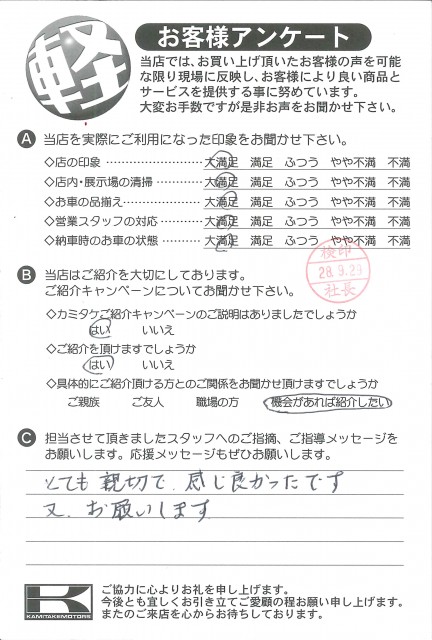 軽
お客様アンケート
当店では、お買い上げ頂いたお客様の声を可能
な限り現場に反映し、お客様により良い商品と
サービスを提供する事に努めています。
大変お手数ですが是非お声をお聞かせ下さい。
A 当店を実際にご利用になった印象をお聞かせ下さい。
◇店の印象 ……………………… 大満足 満足 ふつう やや不満 不満
◇店内・展示場の清掃 ………… 大満足 満足 ふつう やや不満 不満
◇お車の品揃え………………… 大満足 満足 ふつう やや不満 不満
◇営業スタッフの対応 ………… 大満足 満足 ふつう やや不満 不満
◇納車時のお車の状態 ………… 大満足 満足 ふつう やや不満 不満
検印
28.9.29
社長
B 当店はご紹介を大切にしております。
ご紹介キャンペーンについてお聞かせ下さい。
◇カミタケご紹介キャンペーンのご説明はありましたでしょうか
はい いいえ
◇ご紹介を頂けますでしょうか
はい いいえ
◇具体的にご紹介頂ける方とのご関係をお聞かせ頂けますでしょうか
ご親族 ご友人 職場の方 機会があれば紹介したい
C 担当させて頂きましたスタッフへのご指摘、ご指導メッセージを
お願いします。応援メッセージもぜひお願いします。
とても親切で、感じ良かったです
又、お願いします
K
KAMITAKEMOTORS
ご協力に心よりお礼を申し上げます。
今後とも宜しくお引き立てご愛顧の程お願い申し上げます。
またのご来店を心からお待ちしております。